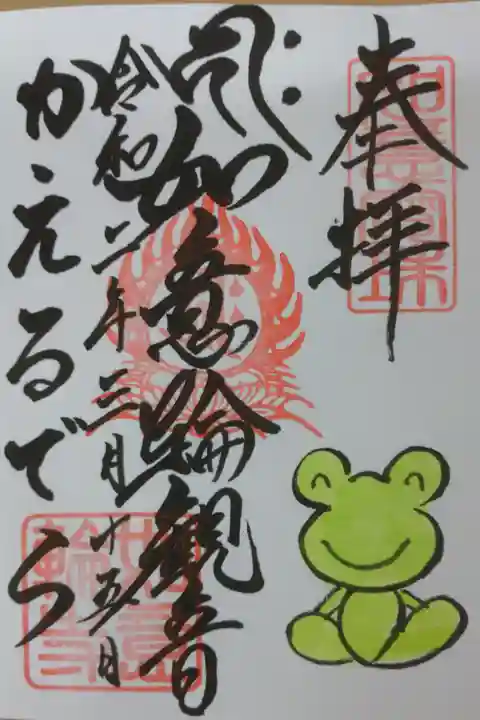 奉拝
如意輪観音
令和二年三月十五日
かえるでら
如意宝珠